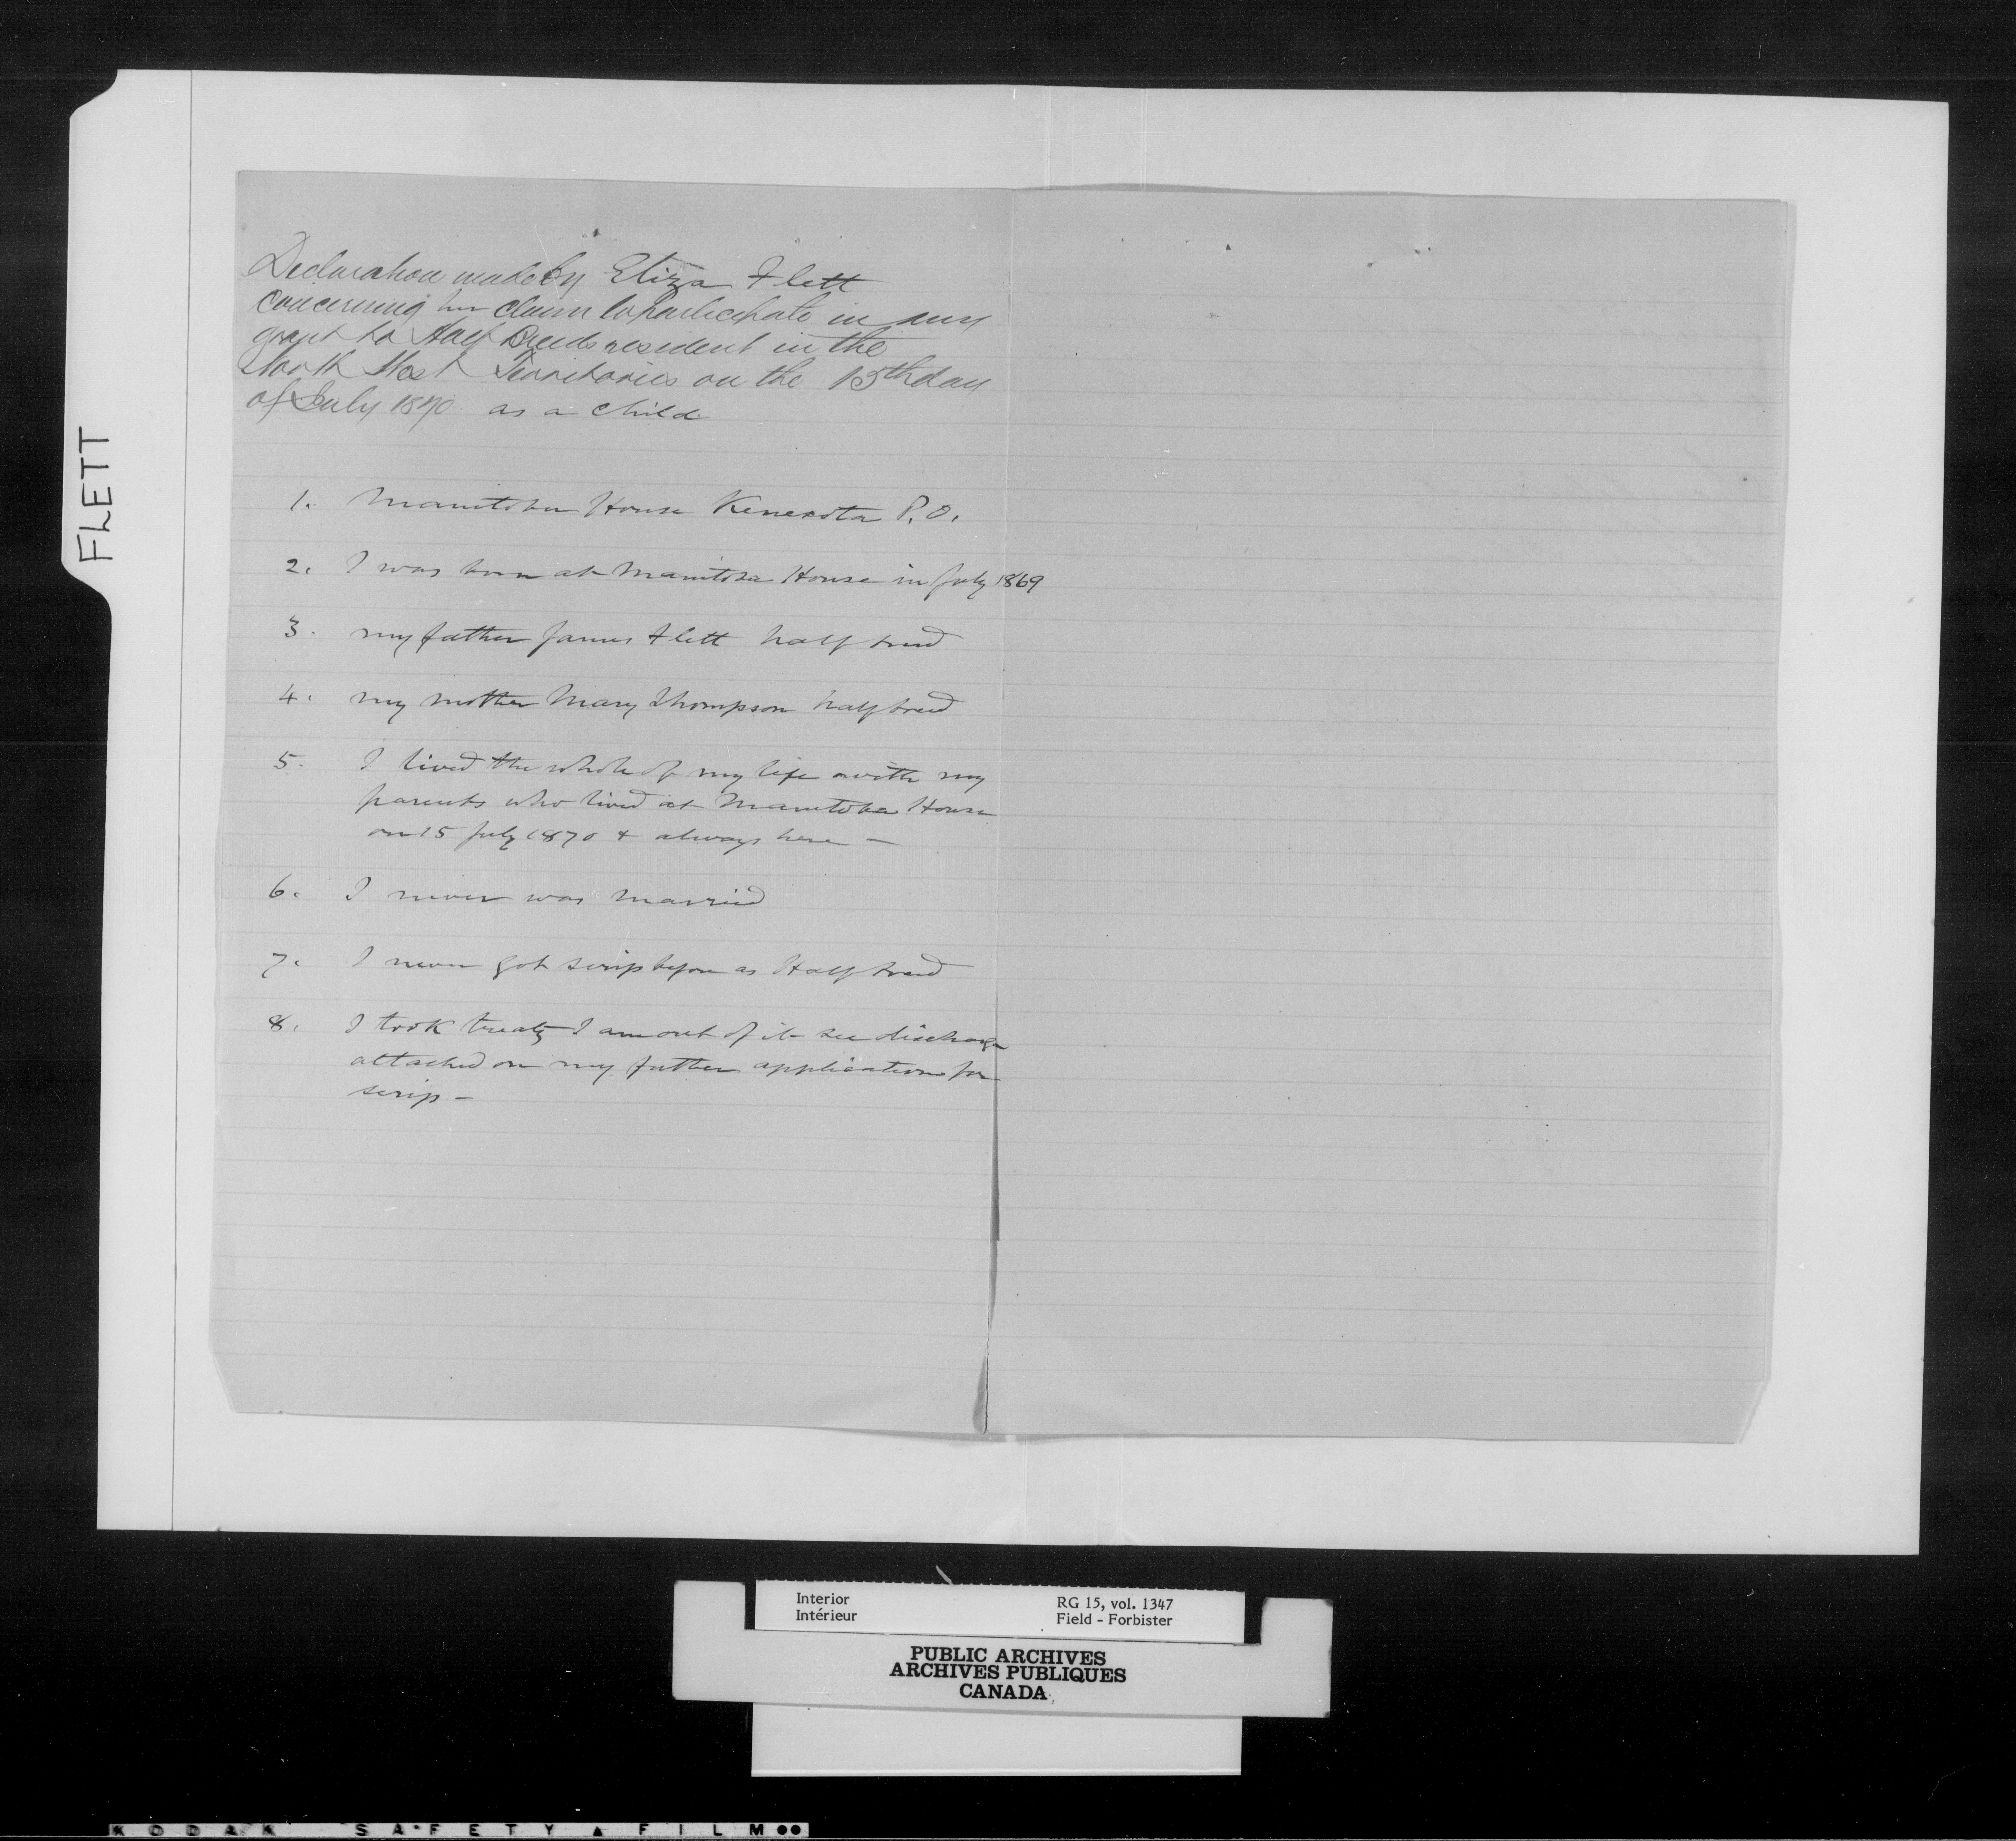 FLETT
Declaration made by Eliza Flett
concerning her claim to participate in any
grant to Half Breeds resident in the
North West Territories on the 15th day
of July 1870 as a child
1. Manitoba House Kenesota P.O.
2. I was born at Manitoba House in July 1869
3. my father James Flett half breed
4. my mother Mary Thompson half breed
5. I lived the whole of my life with my
parents who lived at Manitoba House
on 15 July 1870 & always here -
6. I never was married
7. I never got scrip before as Half breed
8. I took treaty I am out of it see discharge
attached on my father application for
scrip -
Interior
Intérieur
RG 15, vol. 1347
Field - Forbister
PUBLIC ARCHIVES
ARCHIVES PUBLIQUES
CANADA
KODAK SAFETY FILM